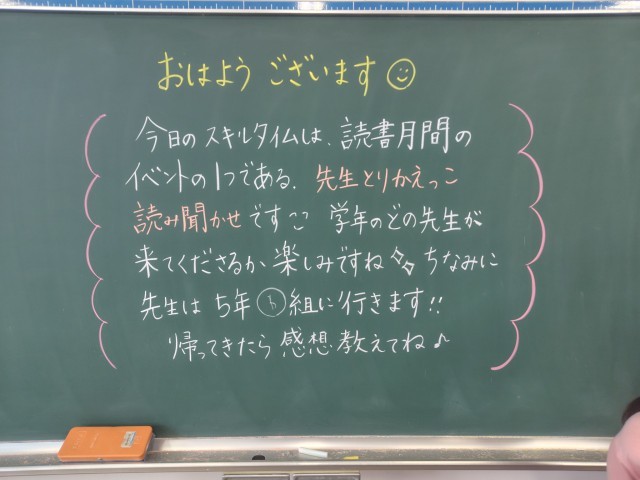 おはようございます
今日のスキルタイムは、読書月間の
イベントの1つである、先生とりかえっこ
読み聞かせです 学年のどの先生が
来てくださるか楽しみですね ちなみに
先生は5年 組に行きます!!
帰ってきたら感想教えてね♪